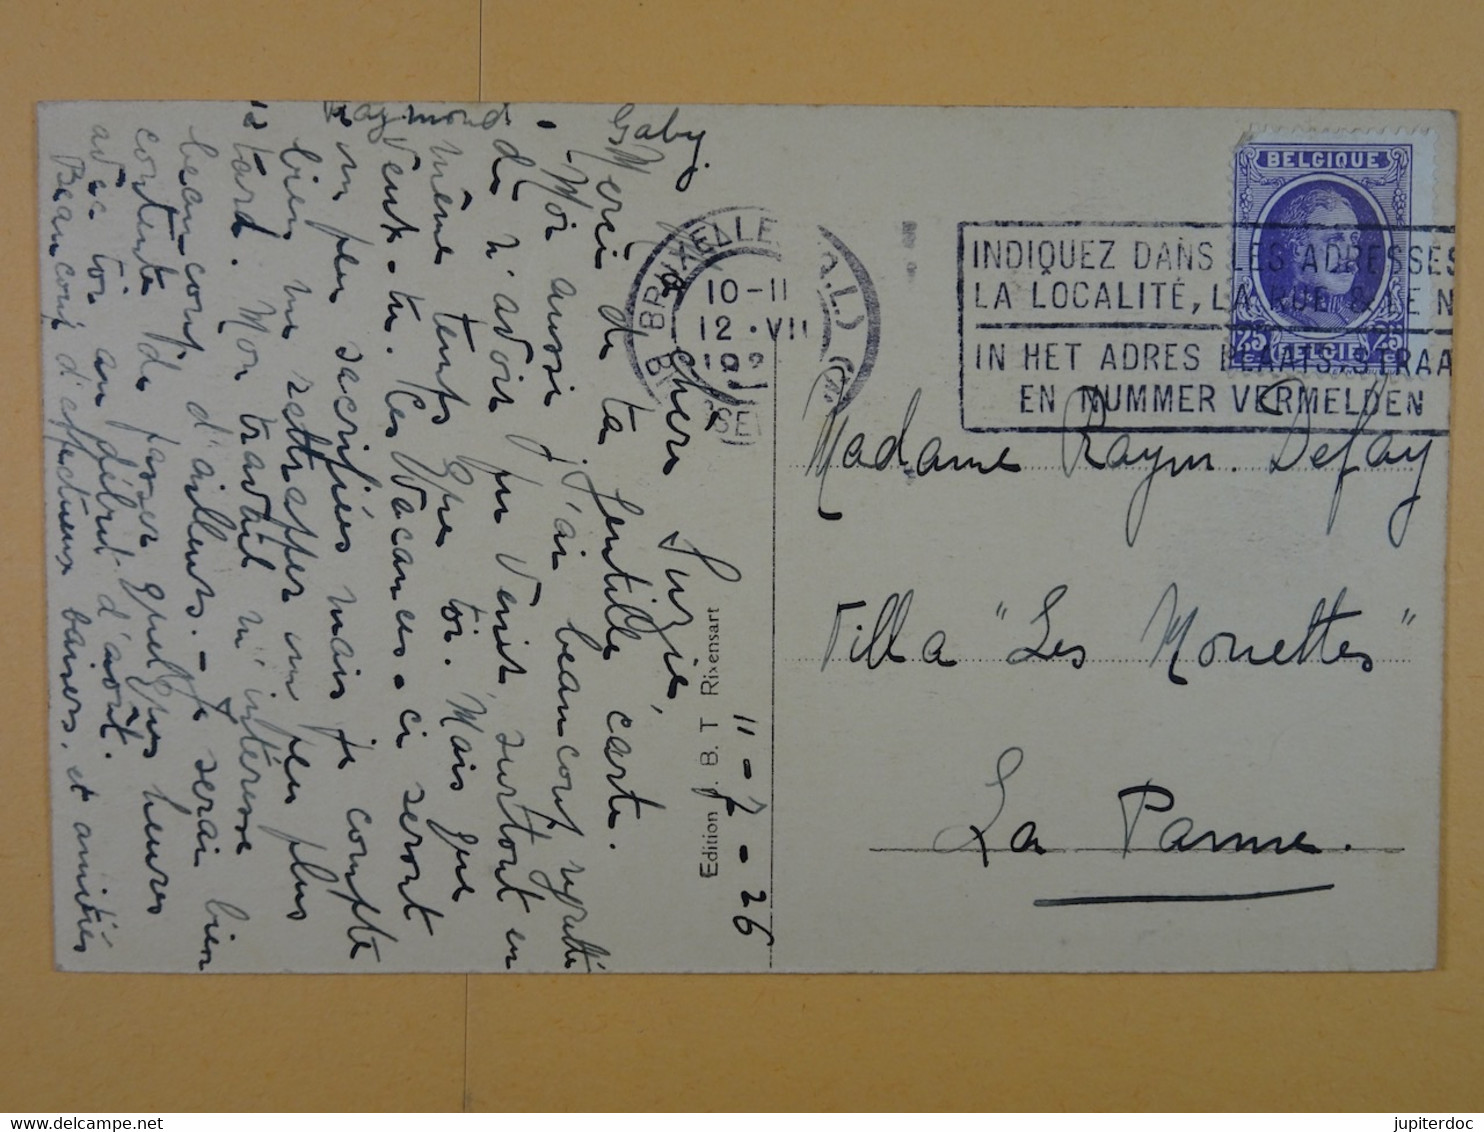 11-7-26
Chère Suzie,
Merci de ta gentille carte.
Moi aussi j'ai beaucoup regretté
de n'avoir pu venir, surtout en
même temps que toi. Mais que
veux-tu. Ces vacances-ci seront
un peu sacrifiées mais je compte
bien me rattraper un peu plus
tard. Mon travail m'intéresse
beaucoup d'ailleurs. - Je serai bien
contente de passer quelques heures
avec toi au début d'août.
Beaucoup d'affectueux baisers. et amitiés
à Raymond -
Gaby
Edition J. B. T Rixensart
BRUXELLE
10-11
12 · VII
192
BR SSEL
BELGIQUE
25 25
BELGIE
INDIQUEZ DANS LES ADRESSES
LA LOCALITÉ, LA RUE & LE N
IN HET ADRES PLAATS, STRAA
EN NUMMER VERMELDEN
Madame Raym. Defay
Villa "Les Mouettes"
La Panne.
jupiterdoc